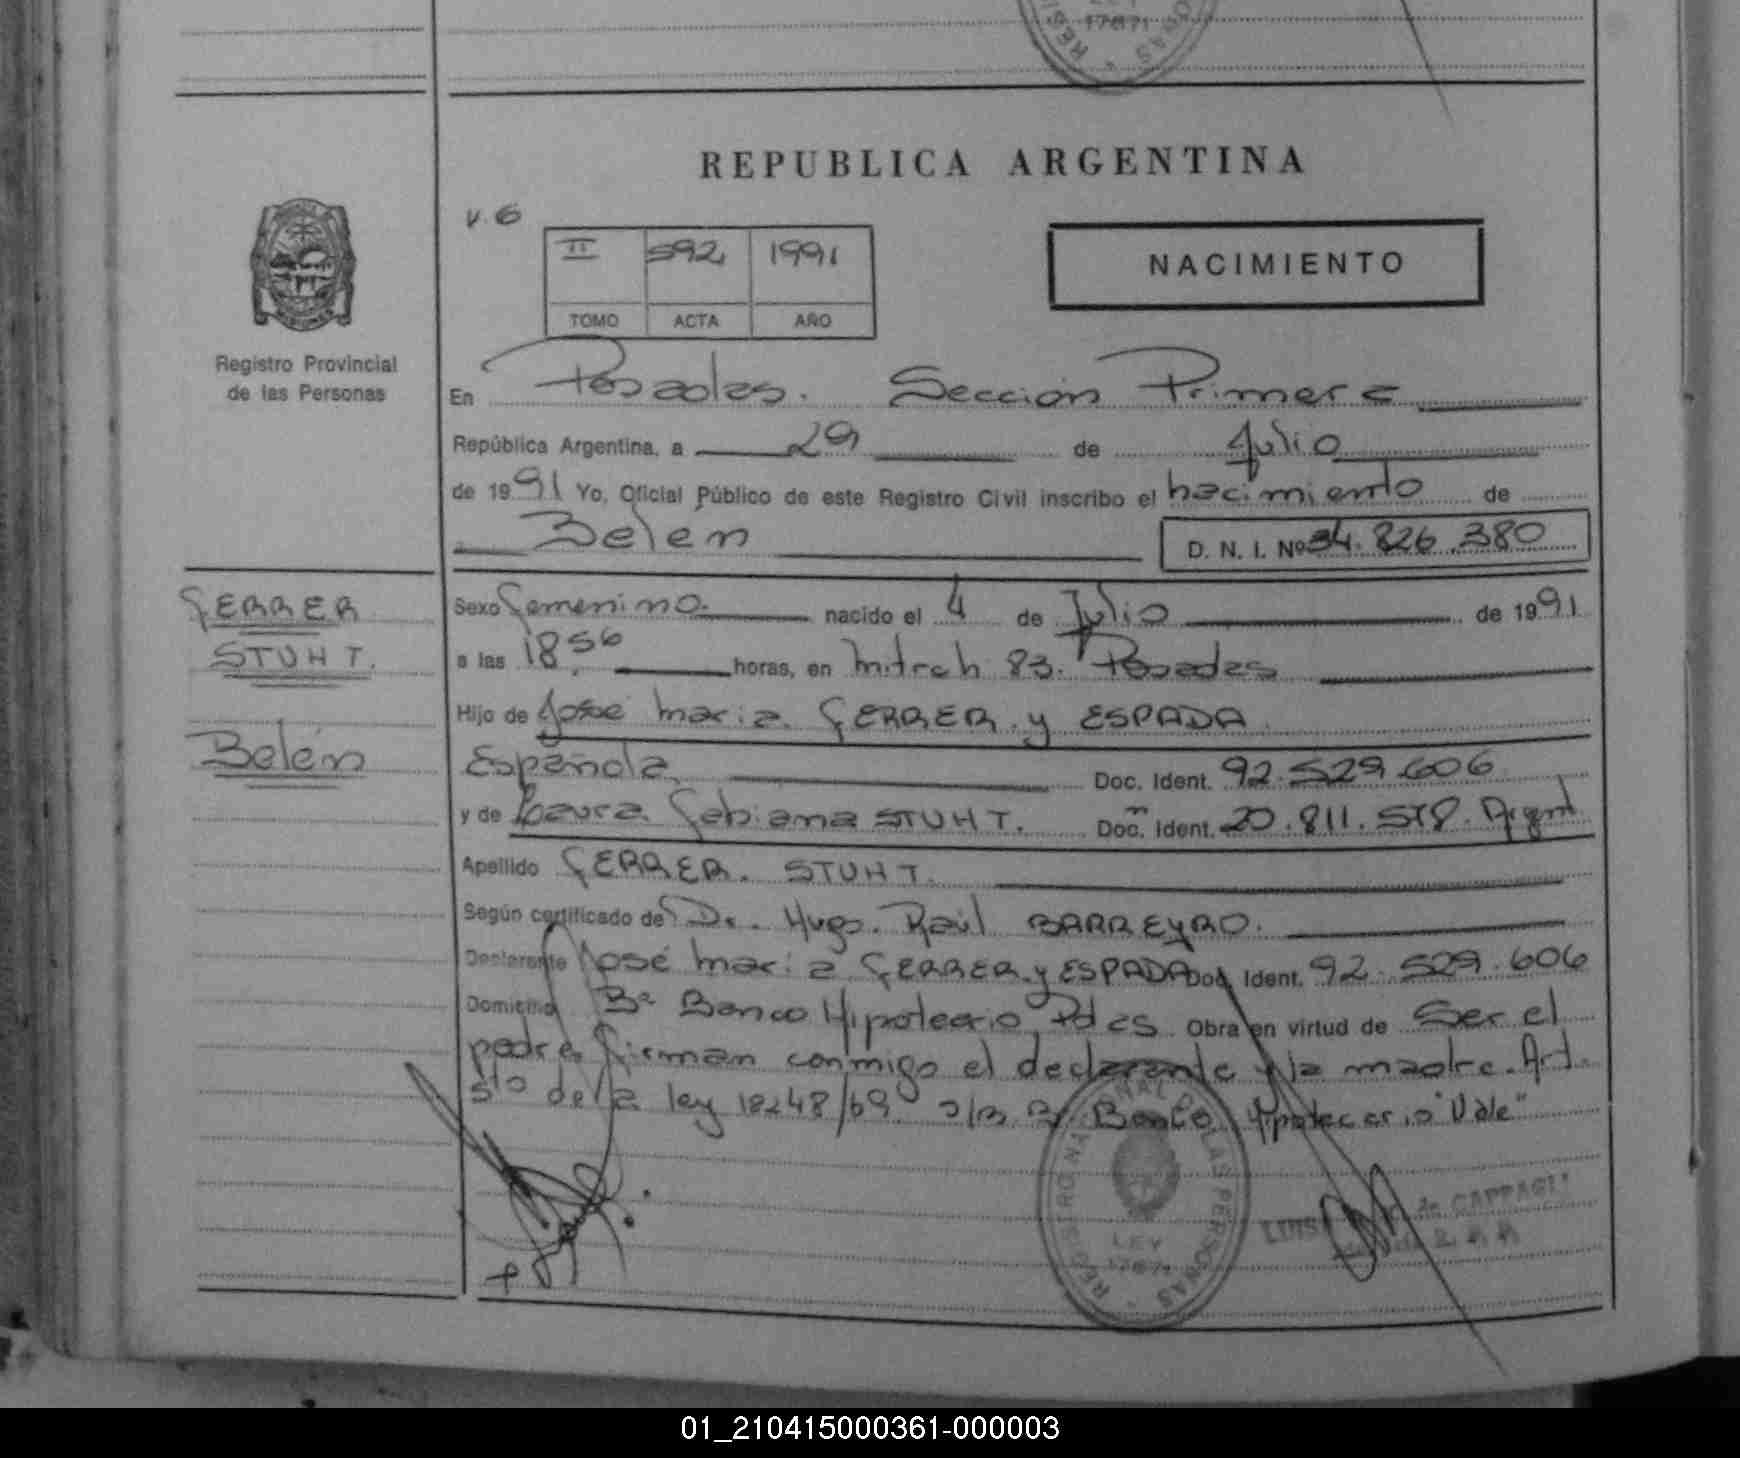 REPUBLICA ARGENTINA
v. 6
II 592 1991
TOMO ACTA AÑO
NACIMIENTO
Registro Provincial
de las Personas
En Posadas. Sección Primera
República Argentina, a 29 de Julio
de 1991 Yo, Oficial Público de este Registro Civil inscribo el nacimiento de
Belen D. N. I. Nº 34.826.380
FERRER
STUHT.
Belén
Sexo Femenino. nacido el 4 de Julio de 1991
a las 18 56 horas, en Mitre h 83. Posadas
Hijo de José Maria FERRER y ESPADA
Española Doc. Ident. 92.529.606
y de Laura Fabiana STUHT. Doc. Ident. 20.811.578. Argent
Apellido FERRER. STUHT.
Según certificado de Dr. Hugo Raúl BARREYRO.
Declarante José Maria FERRER y ESPADA Doc. Ident. 92.529.606
Domicilio Bº Banco Hipotecario Pdas Obra en virtud de Ser el
padre firman conmigo el declarante y la madre. Art.
5to de la ley 18248/69 Banco Hipotecario "Vale"
REGISTRO NACIONAL DE LAS PERSONAS
LEY
17671
LUIS
01_210415000361-000003